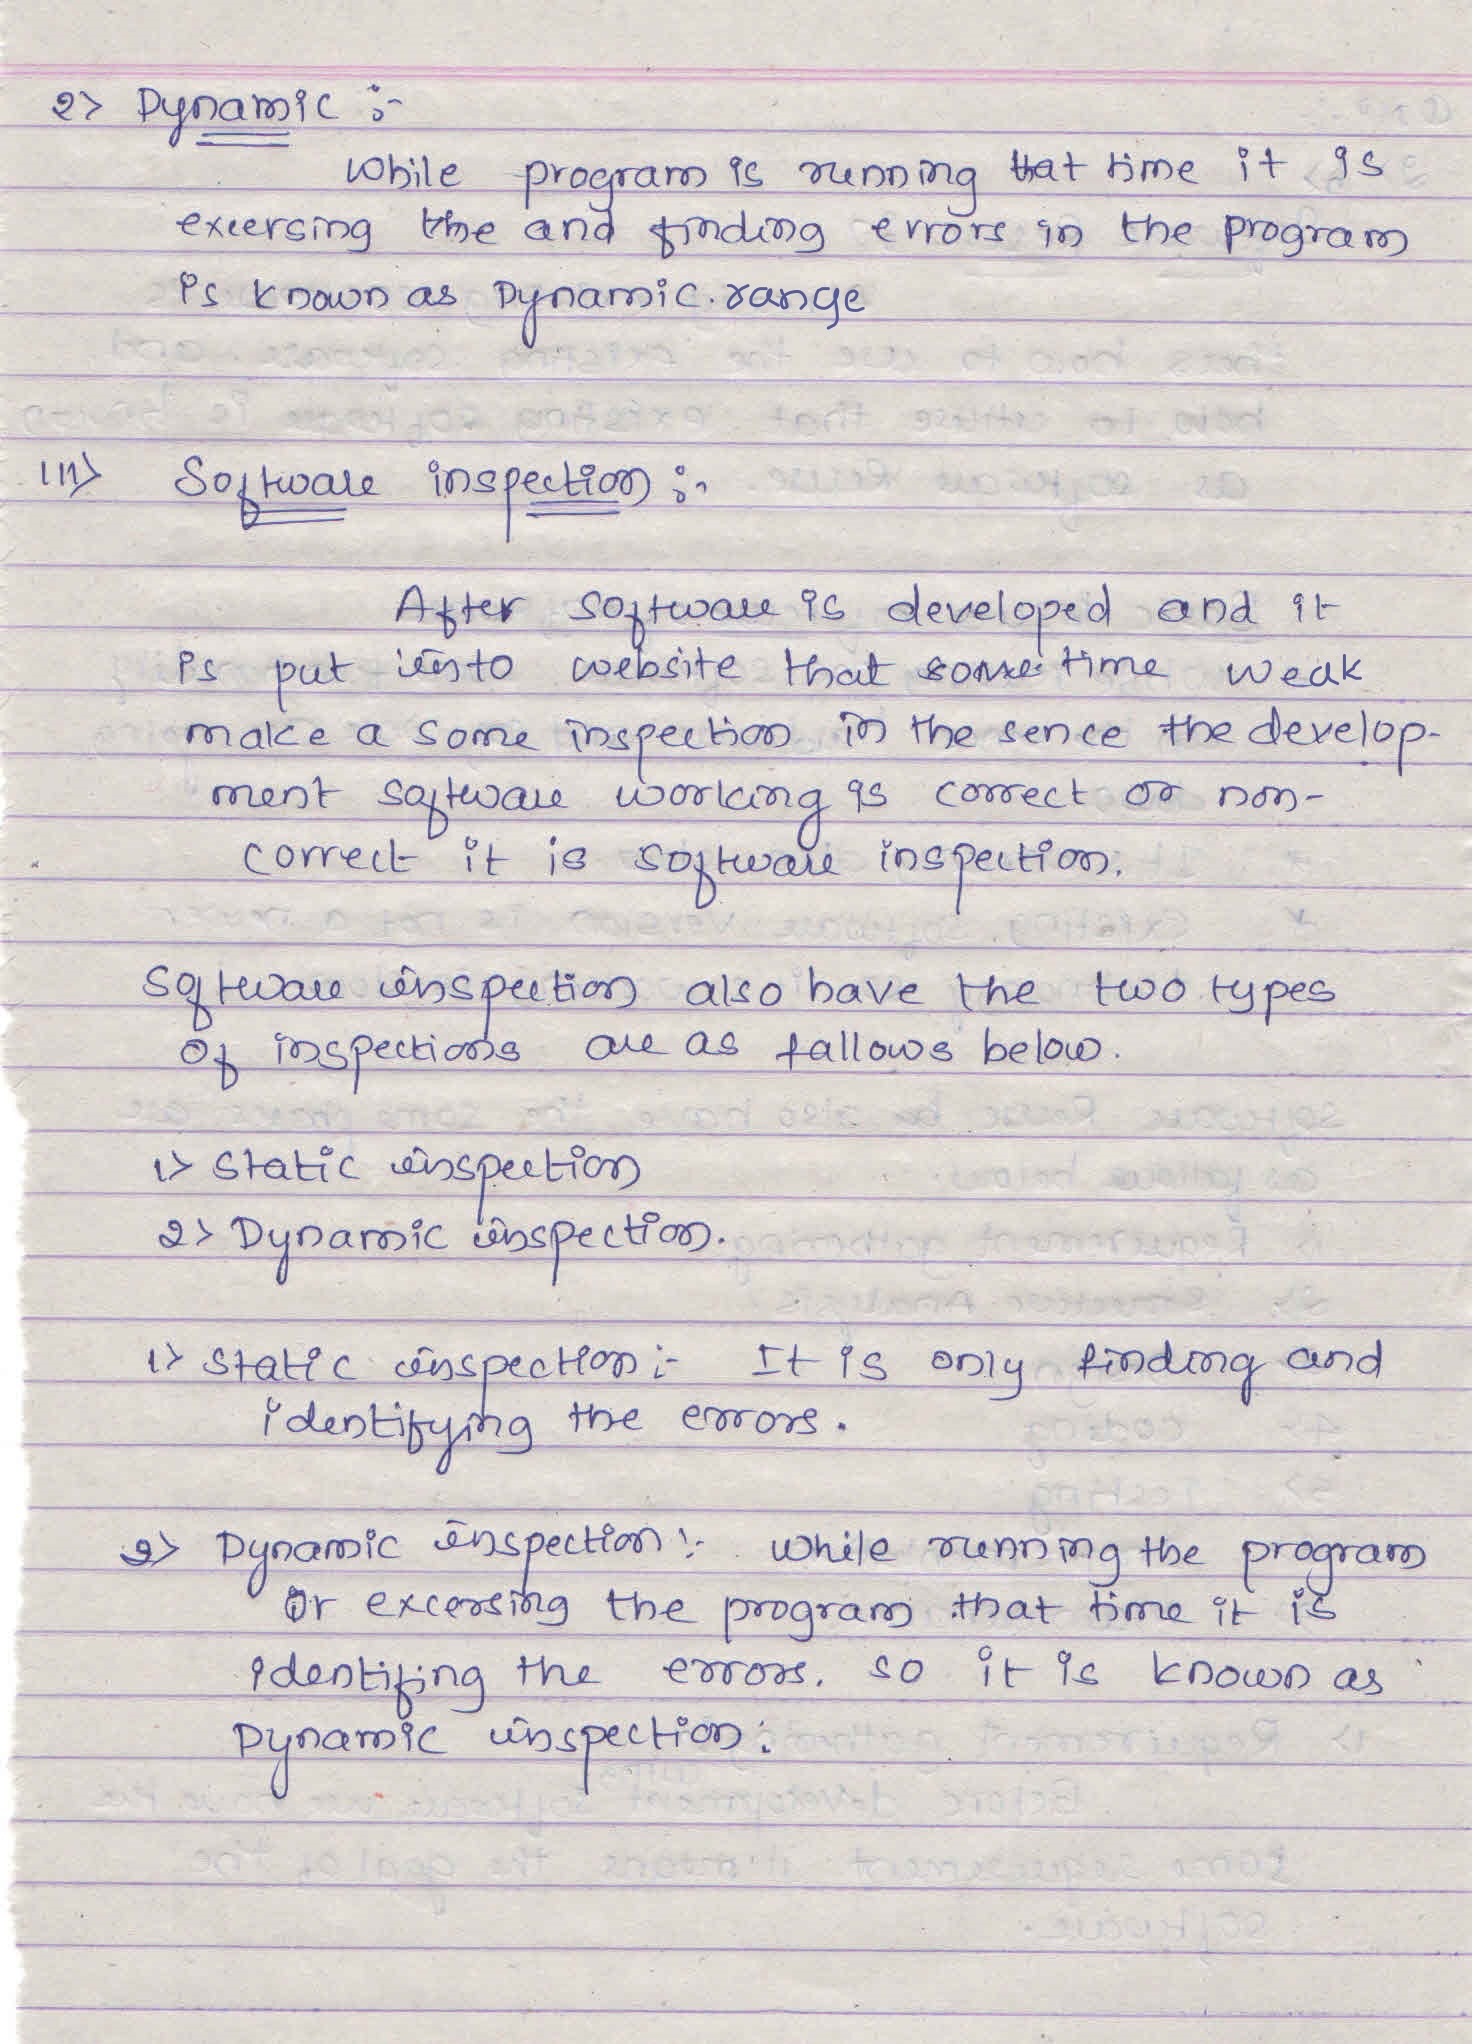 2> Dynamic :-
While program is running that time it is
excersing the and finding errors in the program
is known as Dynamic. range
111> Software inspection :-
After software is developed and it
is put into website that some time weak
make a some inspection in the sence the develop-
ment software working is correct or non-
correct it is software inspection.
Software inspection also have the two types
of inspections are as fallows below.
1> Static inspection
2> Dynamic inspection.
1> Static inspection :- It is only finding and
identifying the errors.
2> Dynamic inspection :- While running the program
Or excersing the program that time it is
identifing the errors. so it is known as
Dynamic inspection: